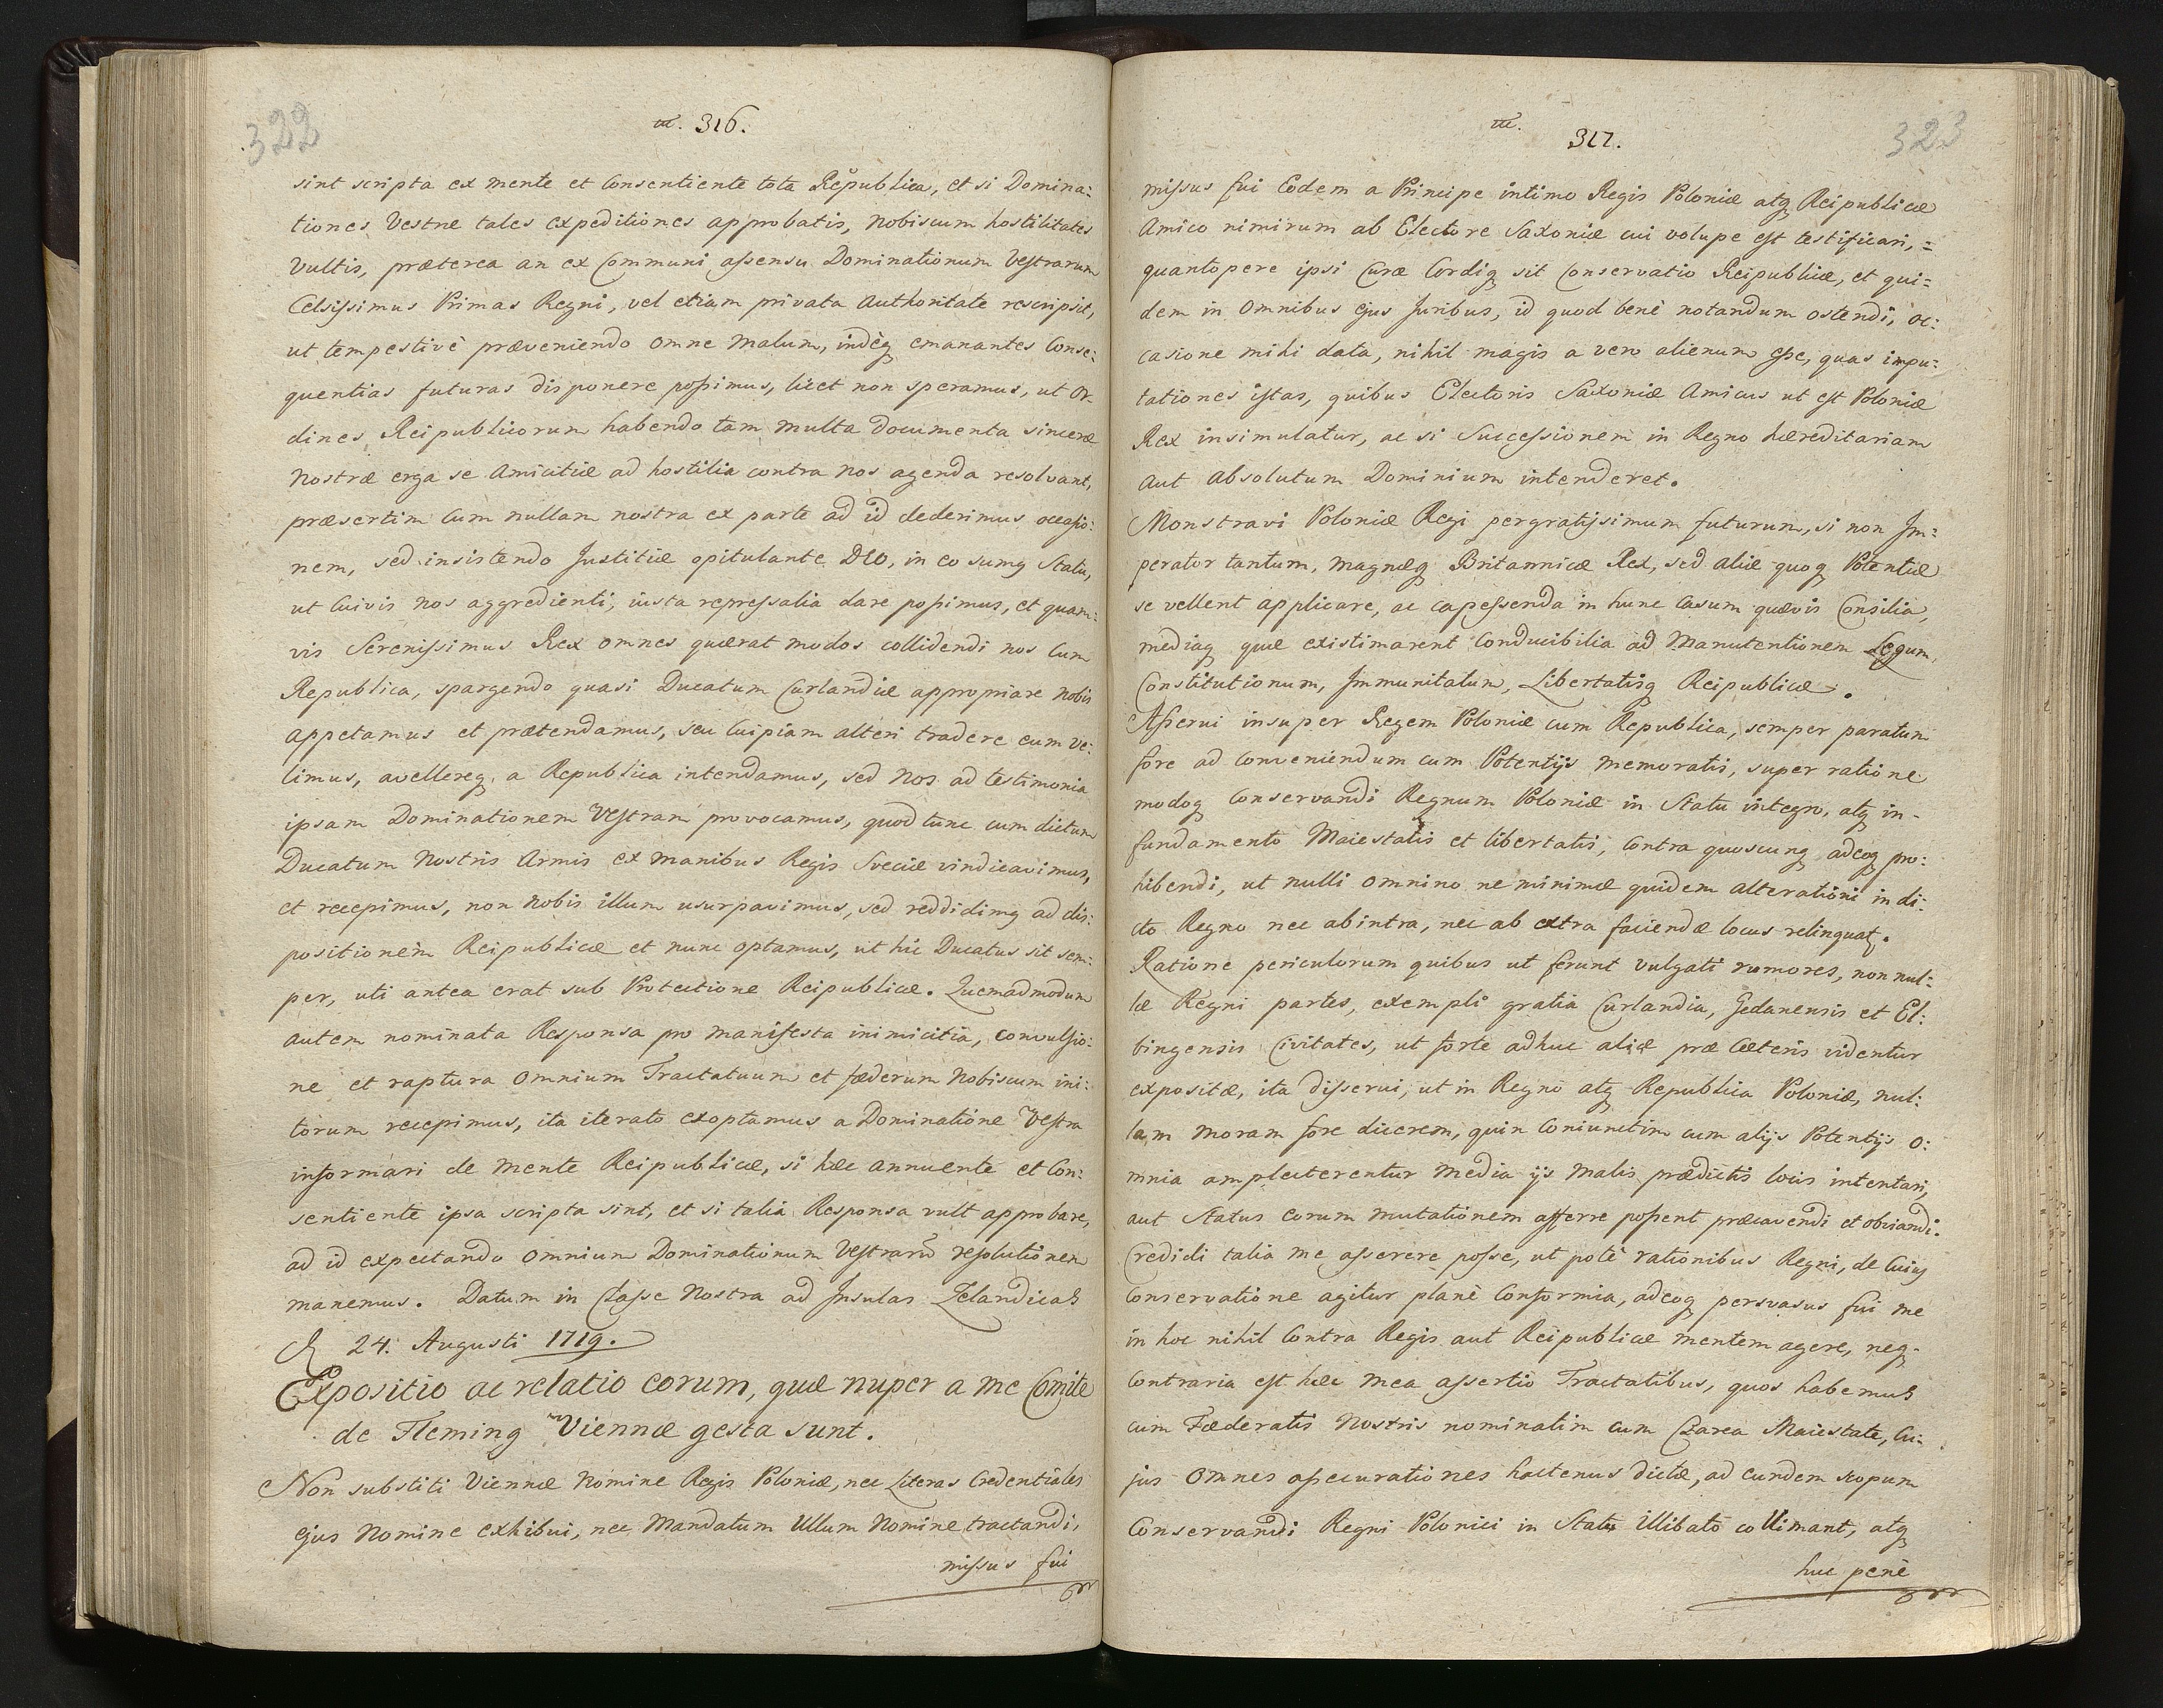 322
m. 316.
sint scripta ex mente et Consentiente tota Republica, et si Domina:
tiones Vestræ tales expeditiones approbatis, Nobiscum hostilitates
Vultis, præterea an ex Communi assensu Dominationum Vestrarum
Celsissimus Primas Regni, vel etiam privata Authoritate rescripsit,
ut tempestivè præveniendo omne malum, indèq emanantes Conse:
quentias futuras disponere possimus, licet non speramus, ut Or:
dines Reipublicorum habendo tam multa documenta sinceræ
Nostræ erga se Amicitiæ ad hostilia contra nos agenda resolvant,
præsertim Cum nullam nostra ex parte ad id dederimus occasio:
nem, sed insistendo Justitiæ opitulante DEO, in eo sumq Statu,
ut Cuivis nos aggredienti, iusta repressalia dare possimus, et quam:
vis Serenissimus Rex omnes quærat modos collidendi nos Cum
Republica, spargendo quasi Ducatum Curlandiæ appropriare Nobis
appetamus et prætendamus, seu Cuipiam alteri tradere eum ve:
limus, avellereq a Republica intendamus, sed Nos ad testimonia
ipsam Dominationem Vestram provocamus, quod tunc cum dictum
Ducatum Nostris Armis ex manibus Regis Sveciæ vindicavimus,
et recepimus, non Nobis illum usurpavimus, sed reddidimq ad dis:
positionem Reipublicæ et nunc optamus, ut hic Ducatus sit sem:
per, uti antea erat sub Protectione Reipublicæ. Quemadmodum
autem nominata Responsa pro manifesta inimicitia, convulsio:
ne et raptura omnium Tractatuum et fæderum Nobiscum ini:
torum recepimus, ita iterato exoptamus a Dominatione Vestra
informari de mente Reipublicæ, si hæc annuente et Con:
sentiente ipsa scripta sint, et si talia Responsa vult approbare,
ad id expectando omnium Dominationum Vestrarũ resolutionem
manemus. Datum in Classe Nostra ad Insulas Zelandicas
24. Augusti 1719.
Expositio ac relatio eorum, quæ nuper a me Comite
de Fleming Viennæ gesta sunt.
Non substiti Viennæ Nomine Regis Poloniæ, nec Literas Credentiales
ejus Nomine exhibui, nec Mandatum Ullum Nomine tractandi,
missus fui
m.
317.
323
missus fui Eodem a Principe intimo Regis Poloniæ atq Reipublicæ
Amico nimirum ab Electore Saxoniæ cui volupe est testificari, =
quantopere ipsi Curæ Cordiq sit Conservatio Reipublicæ, et qui:
dem in omnibus ejus Juribus, id quod benè notandum ostendi, oc:
casione mihi data, nihil magis a vero alienum esse, quas impu:
tationes istas, quibus Electoris Saxoniæ Amicus ut est Poloniæ
Rex insimulatur, ac si Successionem in Regno hæreditariam
aut absolutum Dominium intenderet.
Monstravi Poloniæ Regi pergratissimum futurum, si non Im:
perator tantum, Magnæq Britannicæ Rex, sed aliæ quoq Potentiæ
se vellent applicare, ac capessenda in hunc Casum quævis Consilia,
mediaq quæ existimarent Conducibilia ad Manutentionem Legum,
Constitutionum, Immunitatum, Libertatisq Reipublicæ.
Asserui insuper Regem Poloniæ cum Republica, semper paratum
fore ad Conveniendum cum Potentijs memoratis, super ratione
modoq Conservandi Regnum Poloniæ in Statu integro, atq in-
fundamento Maiestatis et libertatis, Contra quoscunq adeoq pro:
hibendi, ut nulli omnino ne minimæ quidem alterationi in di:
cto Regno nec abintra, nec ab extra faciendæ locus relinquatq.
Ratione periculorum quibus ut ferunt vulgati rumores, nonnul:
læ Regni partes, exempli gratia Curlandia, Gedanensis et El:
bingensis Civitates, ut forte adhuc aliæ præ Cæteris videntur
expositæ, ita disserui, ut in Regno atq Republica Poloniæ, nul:
lam moram fore dicerem, quin Coniunctim cum alijs Potentijs o:
mnia amplecterentur media ijs malis prædictis locis intentari,
aut Status eorum mutationem afferre possent præcavendi et obviandi.
Credidi talia me asserere posse, ut potè rationibus Regni, de Cuiq
Conservatione agitur planè Conformia, adeoq persvasus fui me
in hoc nihil Contra Regis aut Reipublicæ mentem agere, neq
Contraria est hæc mea assertio Tractatibus, quos habemus
cum Fæderatis Nostris nominatim cum Czarea Maiestate, Cu:
jus omnes assecurationes hactenus dictæ, ad eundem scopum
Conservandi Regni Polonici in Statu illibato collimant, atq
huc penè